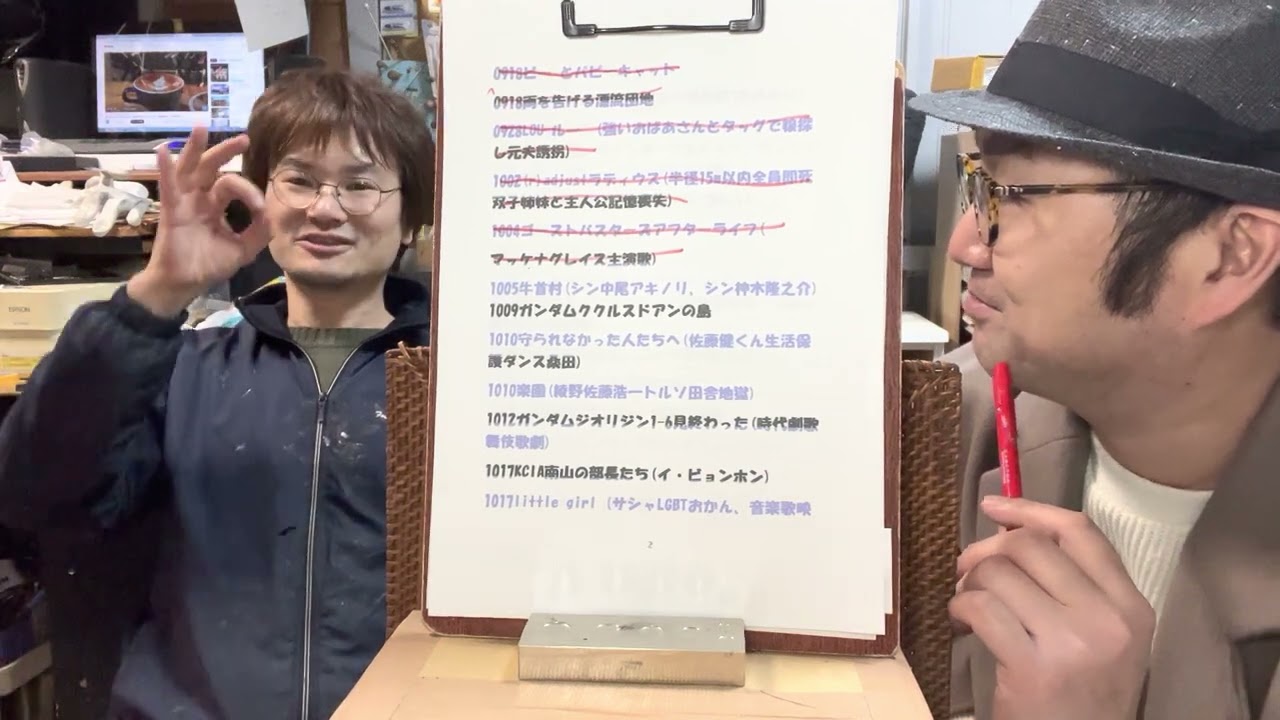 0918ビーとパピーキャット
0918雨を告げる漂流団地
0928LOU ルー (強いおばあさんとタッグで娘探
し元夫誘拐)
1002(r)adjustラディウス(半径15m以内全員即死
双子姉妹と主人公記憶喪失)
1004ゴーストバスターズアフターライフ(
マッケナグレイス主演歌)
1005牛首村(シン中尾アキノリ、シン神木隆之介)
1009ガンダムククルスドアンの島
1010守られなかった人たちへ(佐藤健くん生活保
護ダンス桑田)
1010楽園(綾野佐藤浩一トルソ田舎地獄)
1012ガンダムジオリジン1-6見終わった(時代劇歌
舞伎歌劇)
1017KCIA南山の部長たち(イ・ビョンホン)
1017little girl (サシャLGBTおかん、音楽歌映
2
EPSON